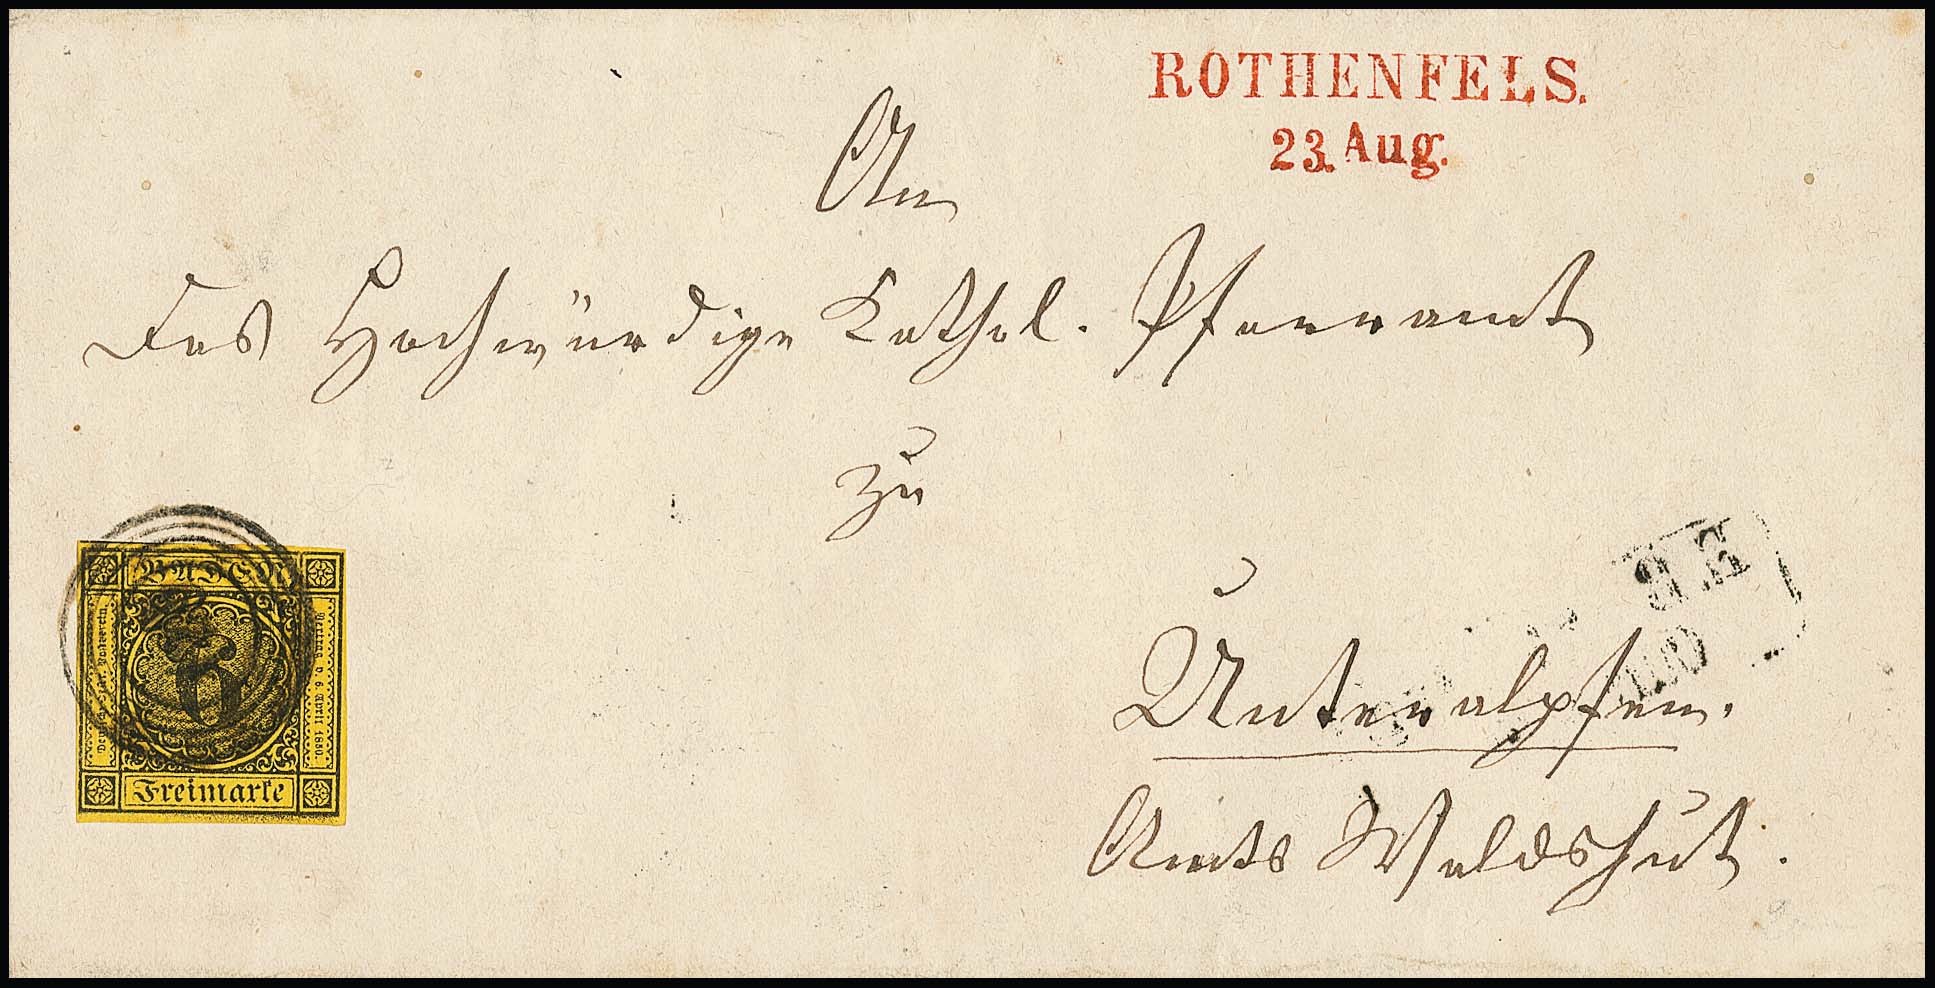 ROTHENFELS.
23. Aug.
An
Das Hochwürdige Kathol. Pfarramt
zu
Unteralpfen.
Amts Waldshut.
BADEN
6
Freimarke
Vertrag v. 6 April 1850.